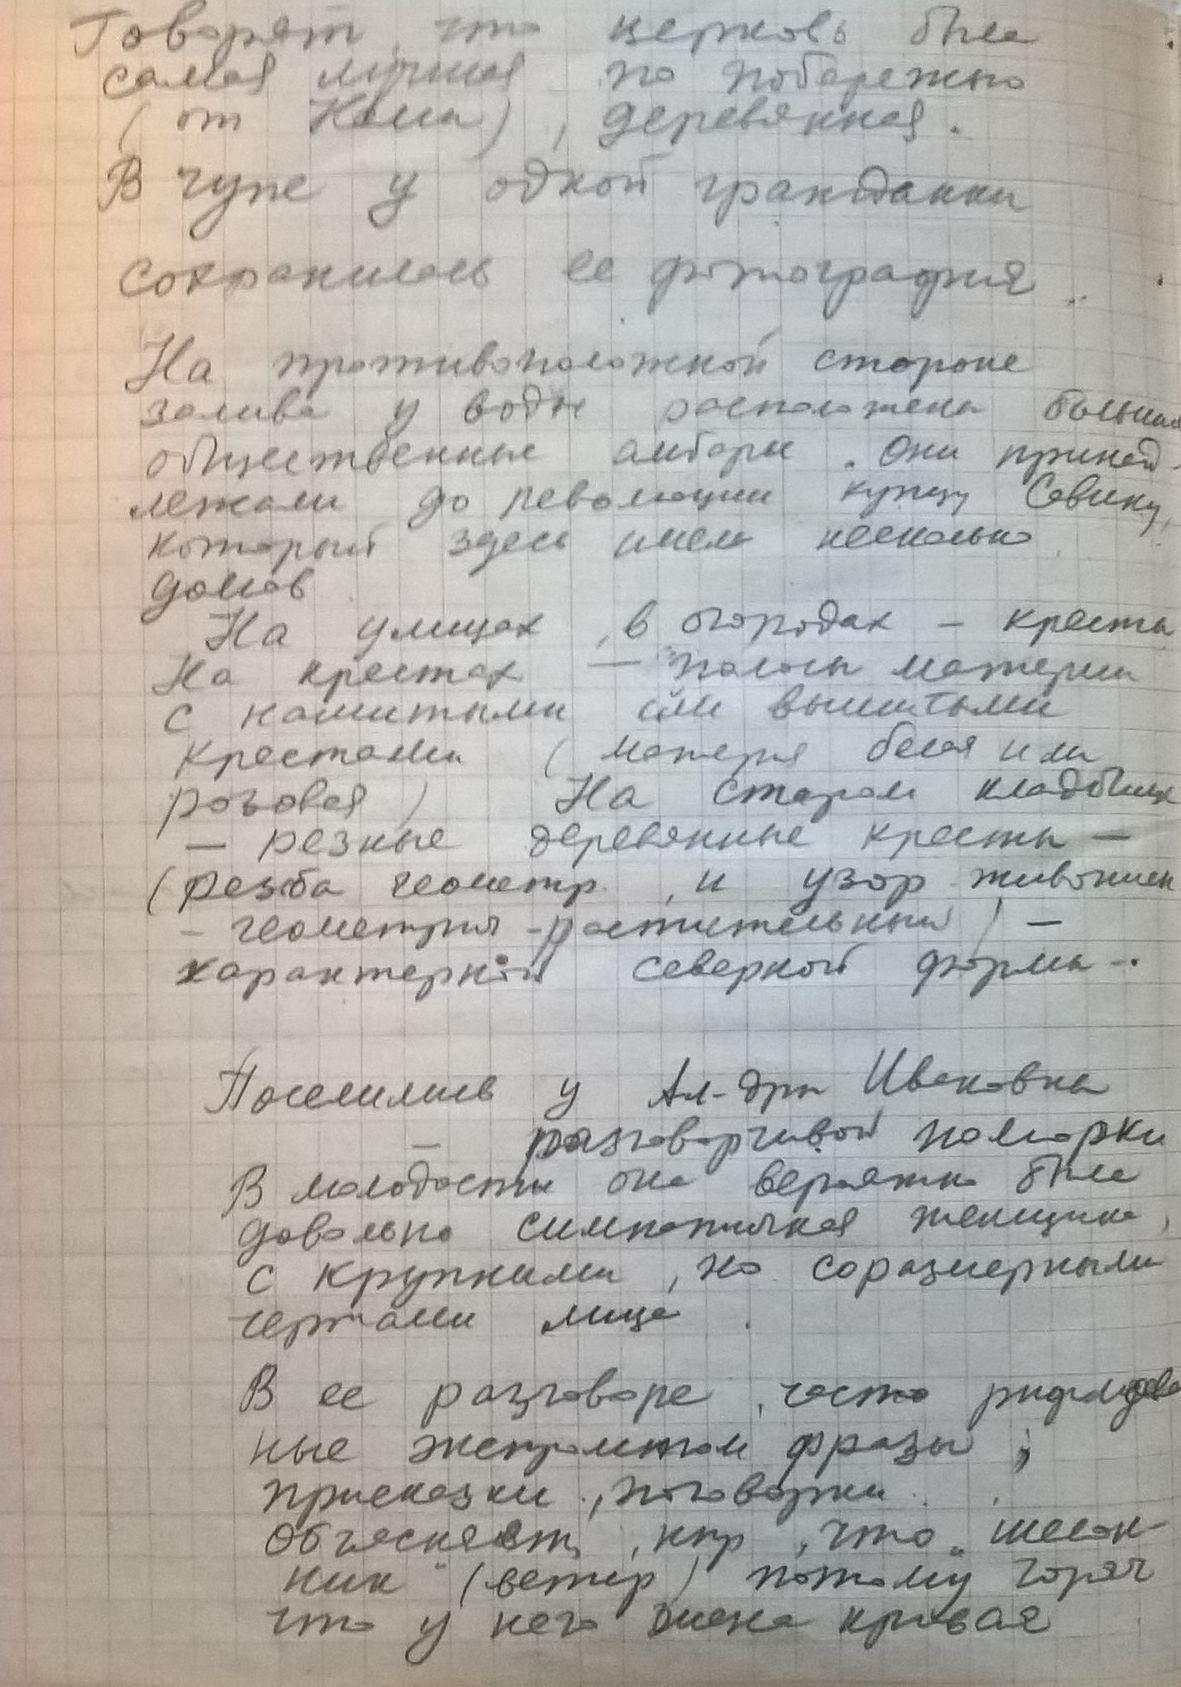 Говорят, что церковь была
самая лучшая по побережью
(от Кеми), деревянная.
В Чупе у одной гражданки
сохранилась ее фотография.
На противоположной стороне
залива у воды расположены большие
общественные амбары. Они принад-
лежали до революции купцу Савину,
который здесь имел несколько
домов.
На улицах, в огородах – кресты
На крестах – полосы материи
с нашитыми или вышитыми
крестами (материя белая или
розовая) На старом кладбище
– резные деревянные кресты –
(резьба геометр. и узор живописн
– геометрич-растительный) –
характерной северной формы.
Поселились у Ал-дры Ивановны
– разговорчивой поморки
В молодости она вероятно была
довольно симпатичная женщина,
с крупными, но соразмерными
чертами лица.
В ее разговоре, часто рифмова
ные экспромтом фразы,
присказки, поговорки.
Объясняет, нпр, что "шелон-
ник" (ветер) потому горяч
что у него жена кривая